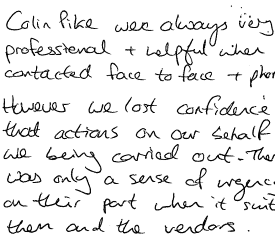 Colin Pike was always very
professional + helpful when
contacted face to face + phon
However we lost confidence
that actions on our behalf
we being carried out. The
was only a sense of urgenc
on their part when it suit
them and the vendors.